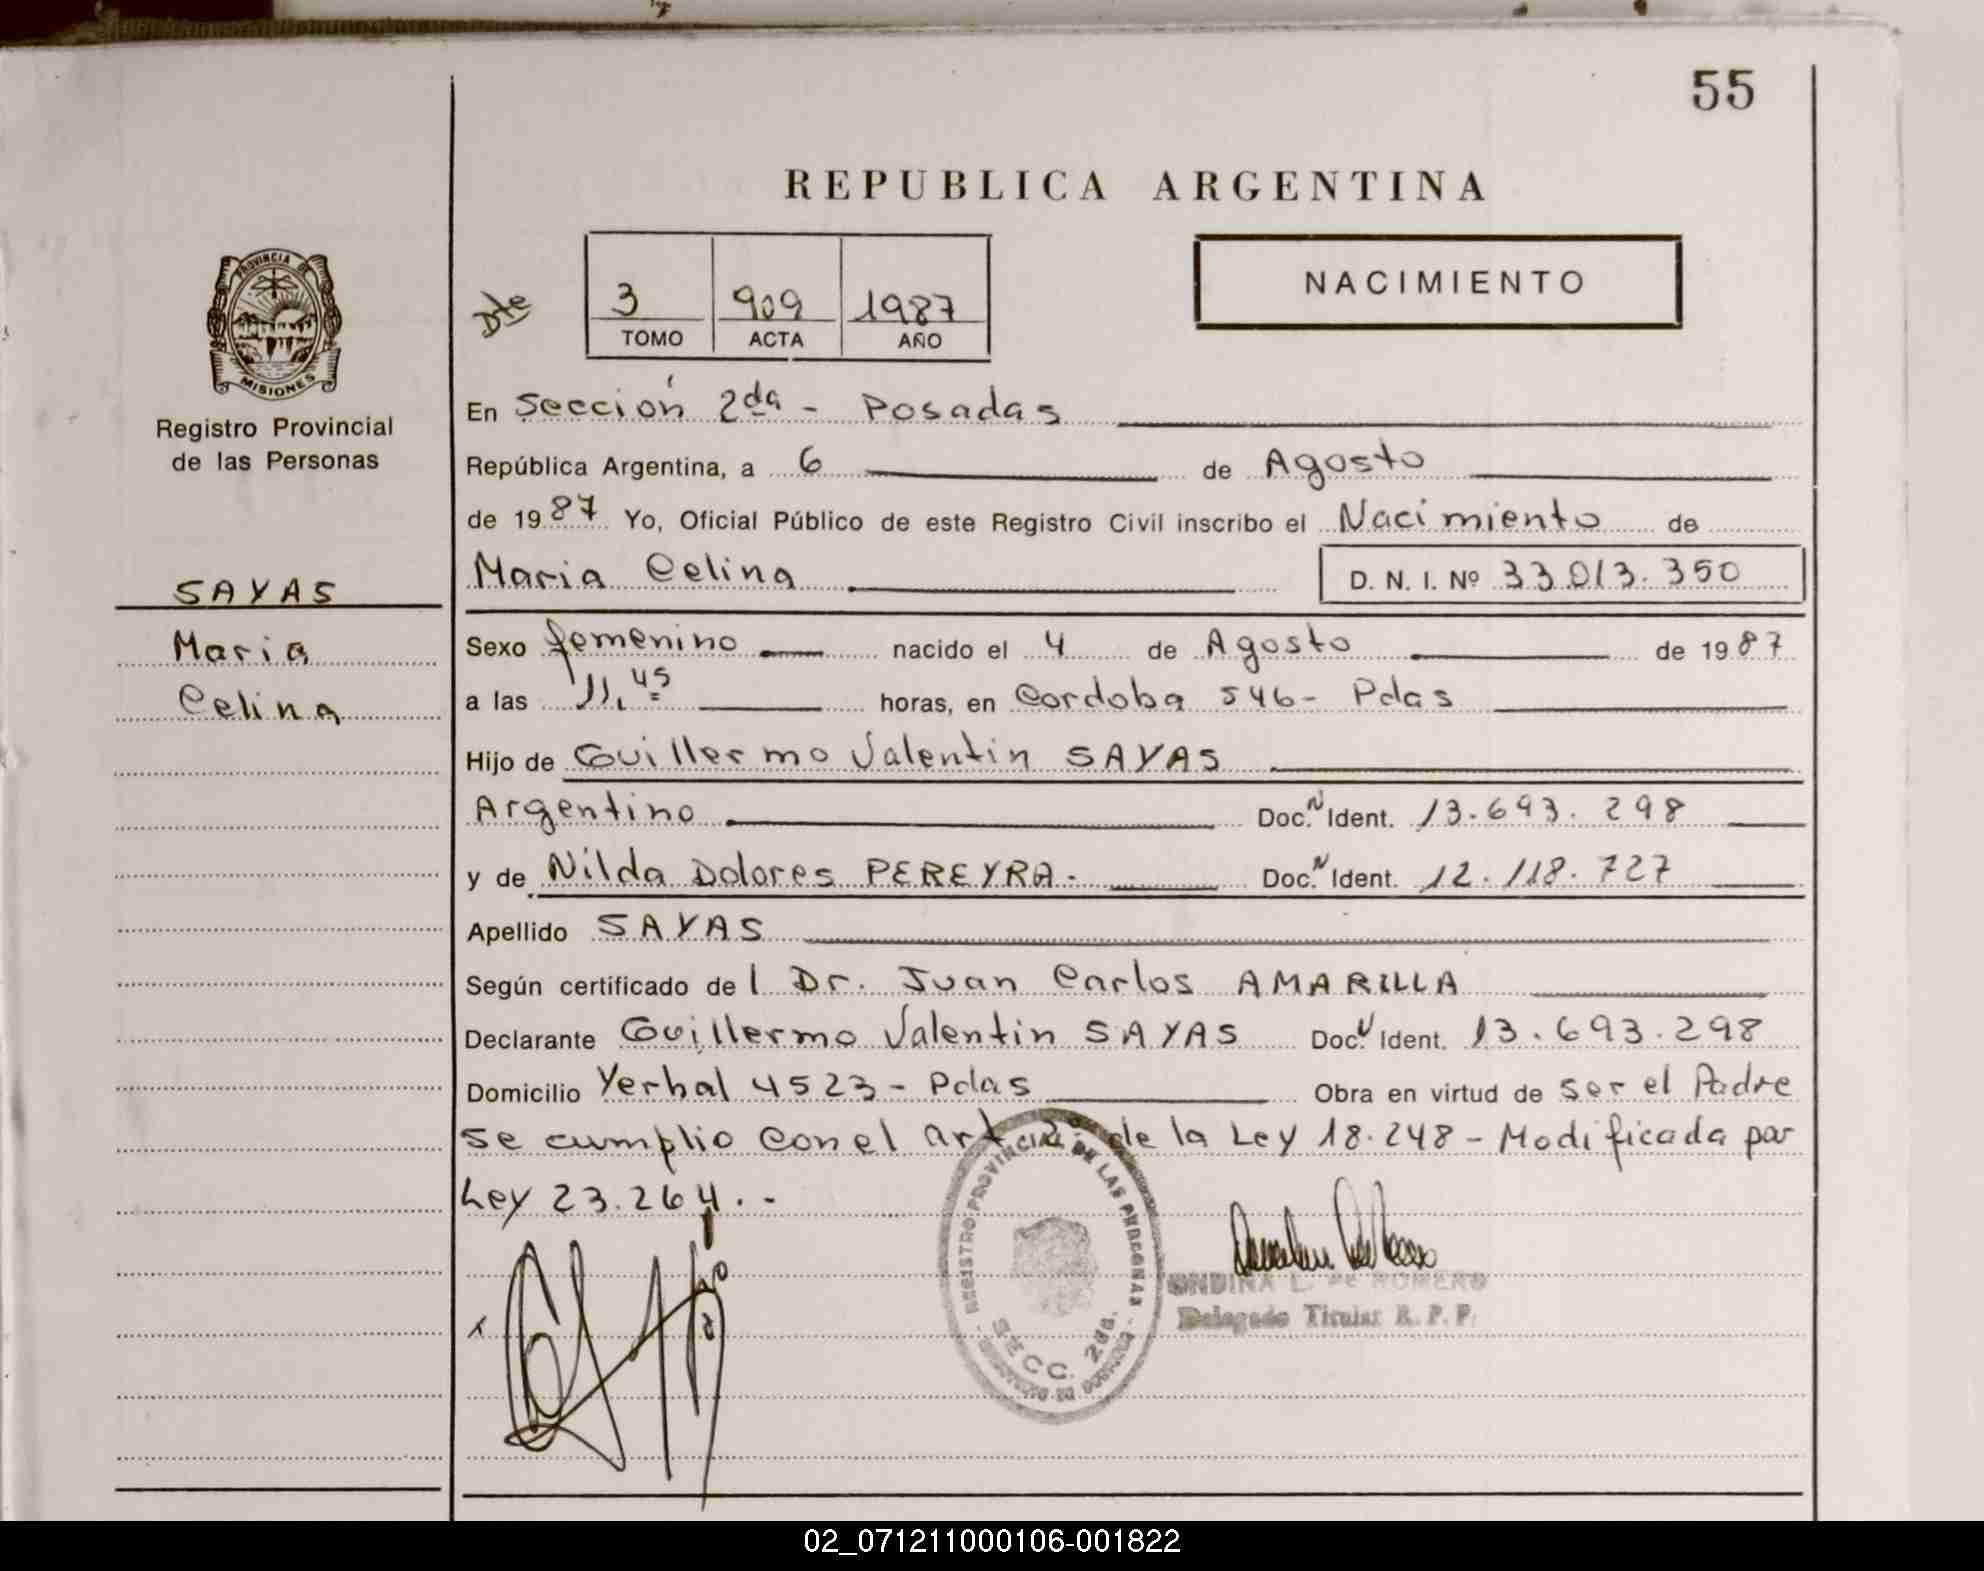 55
REPUBLICA ARGENTINA
PROVINCIA DE
MISIONES
Registro Provincial
de las Personas
SAYAS
Maria
Celina
Dte
3 909 1987
TOMO ACTA AÑO
NACIMIENTO
En Sección 2da - Posadas
República Argentina, a 6 de Agosto
de 1987 Yo, Oficial Público de este Registro Civil inscribo el Nacimiento de
Maria Celina D. N. I. Nº 33.013.350
Sexo femenino nacido el 4 de Agosto de 1987
a las 11,45 horas, en Cordoba 546 - Pdas
Hijo de Guillermo Valentin SAYAS
Argentino Doc. N Ident. 13.693.298
y de Nilda Dolores PEREYRA. Doc. N Ident. 12.118.727
Apellido SAYAS
Según certificado del Dr. Juan Carlos AMARILLA
Declarante Guillermo Valentin SAYAS Doc. N Ident. 13.693.298
Domicilio Yerbal 4523 - Pdas Obra en virtud de ser el Padre
se cumplio con el art 2º de la Ley 18.248 - Modificada por
Ley 23.264. -
REGISTRO PROVINCIAL DE LAS PERSONAS
SECC. 2da.
ONDINA L. de ROMERO
Delegado Titular R. P. P.
x
02_071211000106-001822